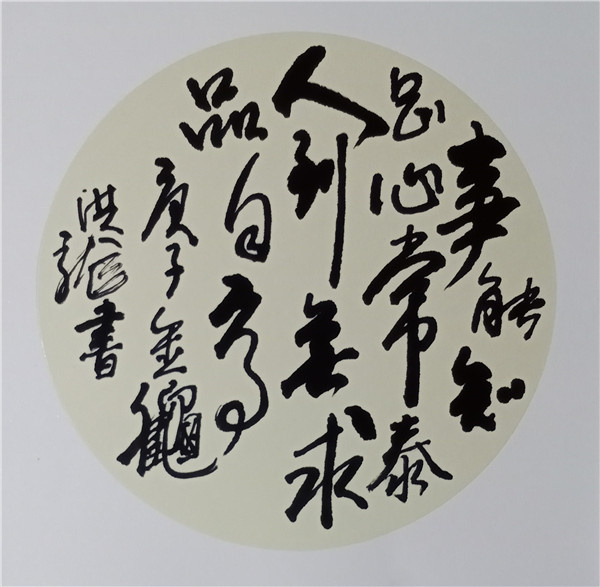 事能知
足心常泰
人到無求
品自高
庚子金龝
洪 書